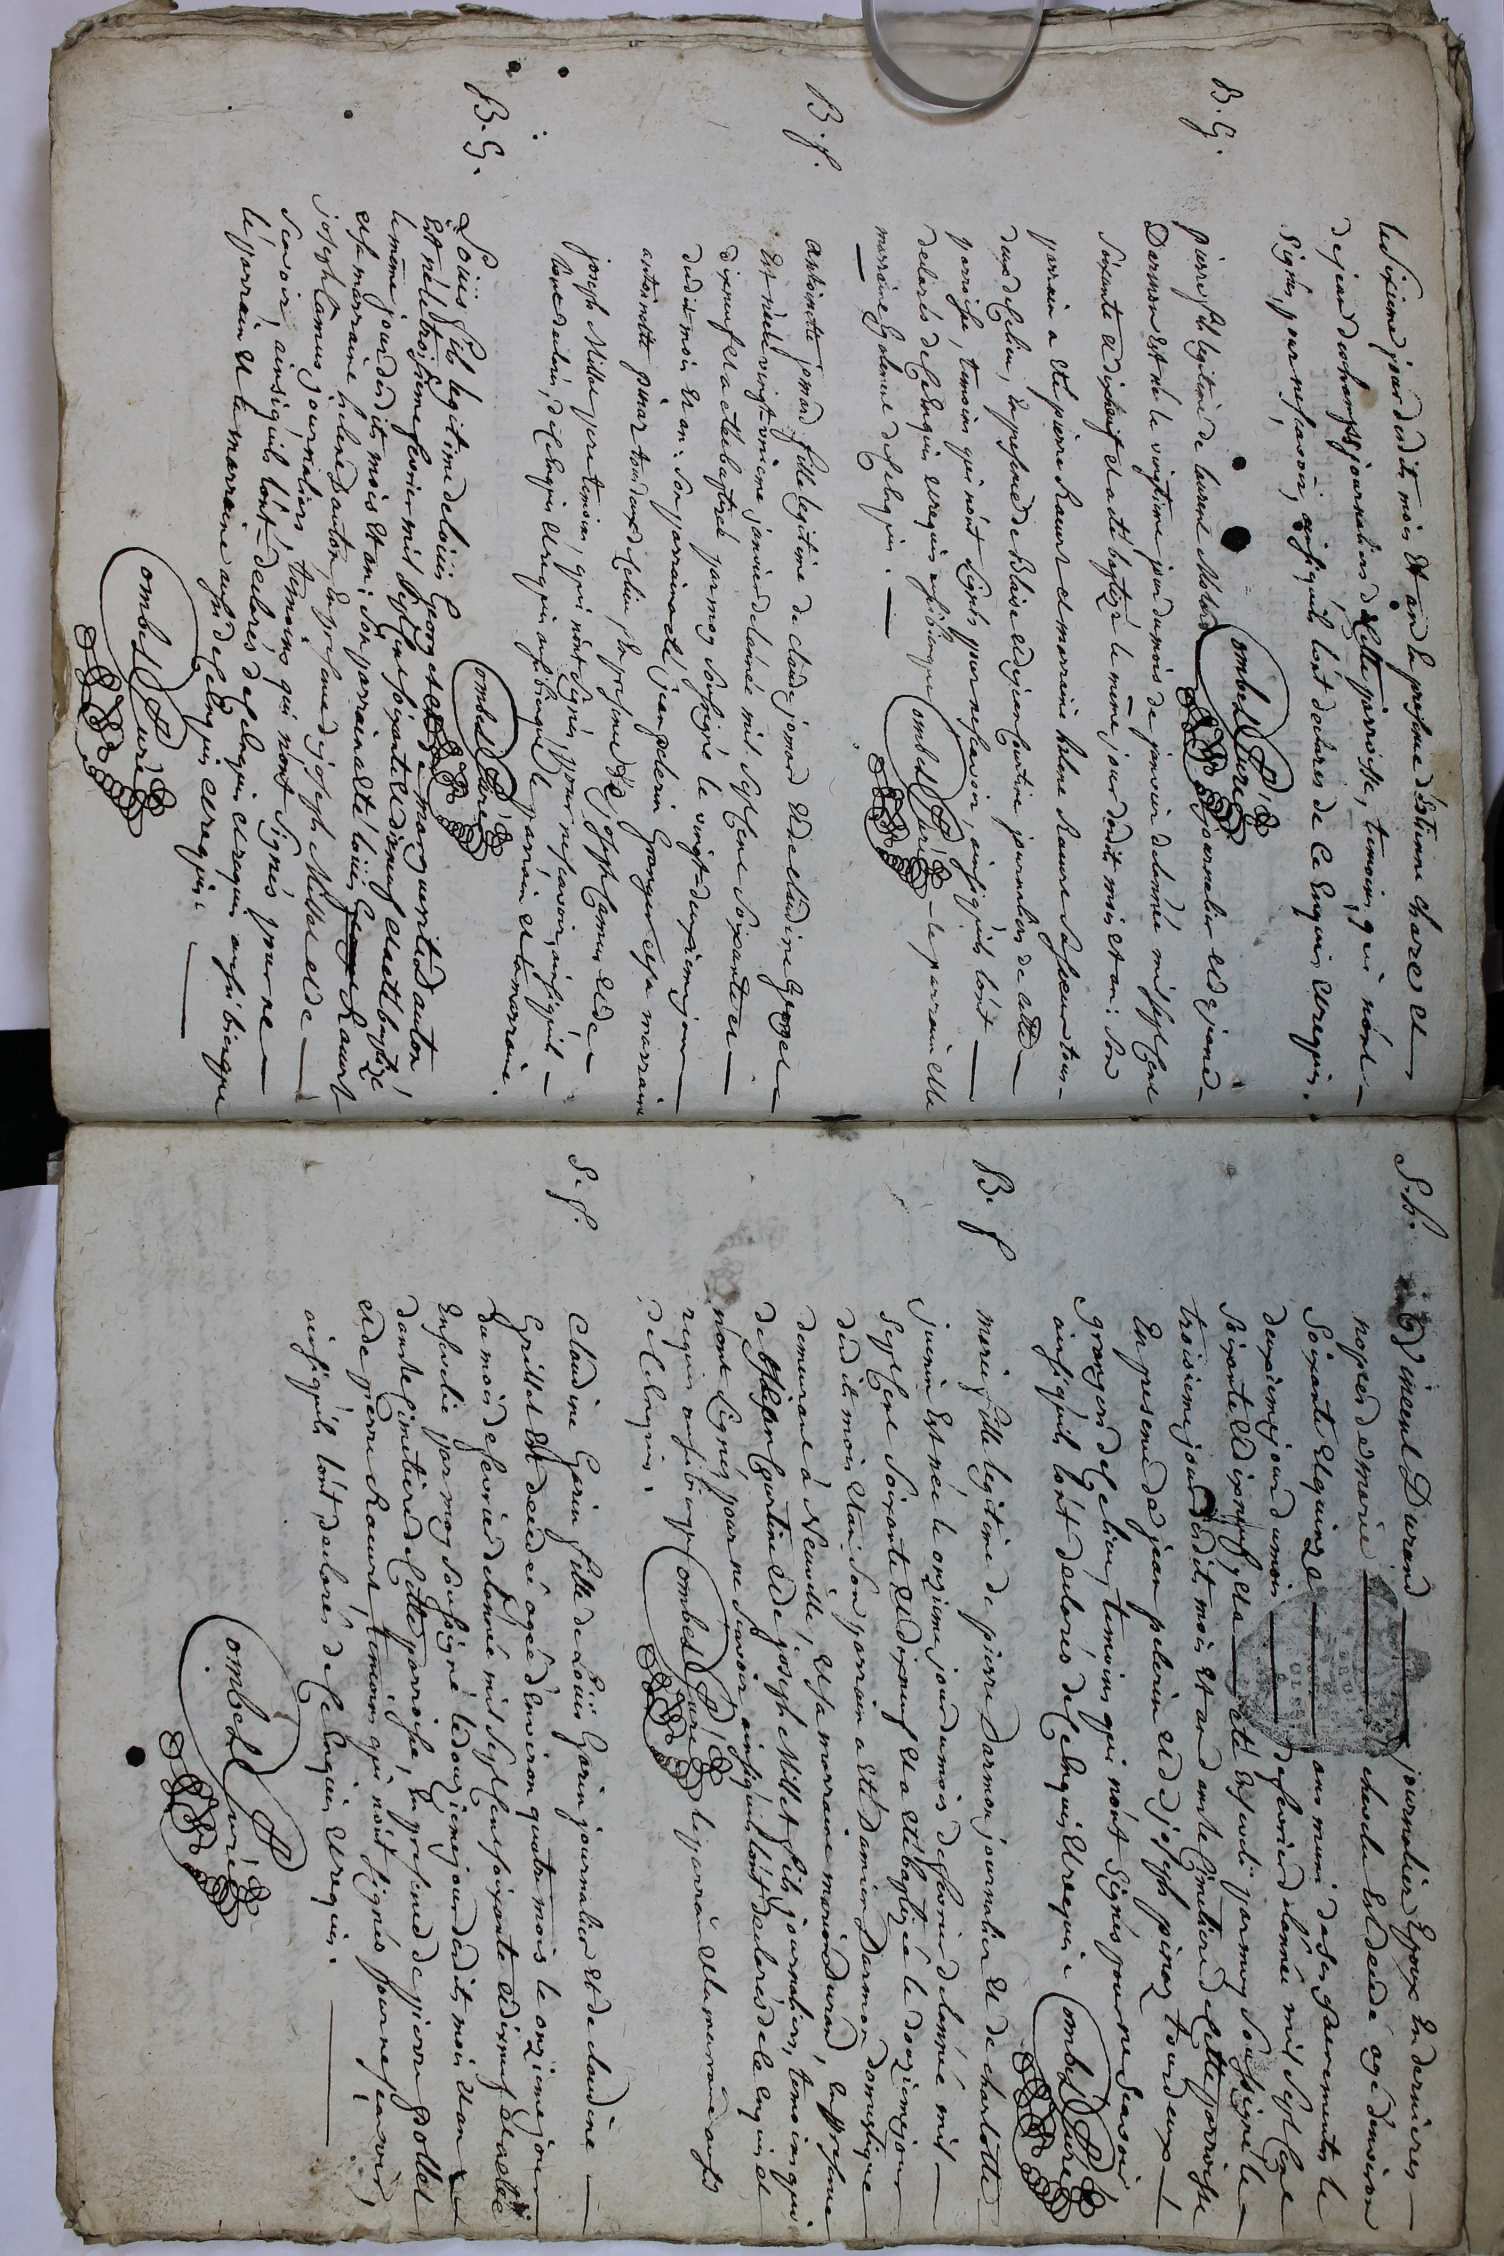 le sixieme jour dudit mois et an En presence d'Estienne chares et
de jean deschamps journaliers de cette parroisse, temoins, qui nont
Signés, pour ne scavoir, ainsi quils l'ont declarés de ce Enquis et requis.
Combes Curé
B. G.
pierre fils legitime de laurent Millet journalier et de jeanne
Darmon est né le vingtieme jour du mois de janvier de lannée mil sept Cent
Soixante et dixneuf et a eté baptizé le même jour dudit mois et an: Son
parrain a eté pierre Raeurt et marraine helene Raeurt Sa soeur tous
deux de Celieu, En presence de Blaise et de jean Courtine journaliers de cette
parroisse, temoins qui n'ont Signés pour ne scavoir, ainsi quils l'ont
declarés de ce Enquis et requis aussi bien que le parrain et la
marraine Egalement de ce Enquis.
Combes Curé
B. f.
antoinette jomard fille legitime de claude jomard et de claudine Gonzel
Est née le vingt unieme janvier de lannée mil Sept Cent Soixante et
dixneuf et a eté baptizée par moy Soussigné le vingt deuxieme jour
dudit mois et an: Son parrain a eté jean pelerin Granger et Sa marraine
antoinette pinaz tous deux de Celieu, En presence de joseph Camus et de
joseph Millot pere temoins, qui n'ont Signés, pour ne scavoir, ainsi quils
l'ont declarés, de ce Enquis et requis aussi bien que le parrain et la marraine.
Combes Curé
B. G.
Loüis fils legitime de Loüis Georges et de marguerite Dauton
Est né le troisieme fevrier mil Sept Cent soixante et dixneuf et a eté baptizé
le meme jour dudit mois et an: Son parrain a eté Loüis Raeurt
et Sa marraine helene Dauton, En presence de joseph Millot et de
joseph Camus journaliers, temoins, qui n'ont Signés pour ne
Scavoir, ainsi quils l'ont declarés, de ce Enquis et requis aussi bien que
le parrain et la marraine aussi de ce Enquis et requis.
Combes Curé
S. h.
Vincent Durand journalier Epoux En dernieres
nopces de marie chevalier Est decedé agé d'environ
Soixante et quinze ans muni de Ses Sacrements le
deuxieme jour du mois de fevrier de lannée mil Sept Cent
Soixante et dixneuf, et a eté Enseveli par moy Soussigné le
troisieme jour dudit mois et an dans le Cimetiere de cette parroisse
En presence de jean pelerin et de joseph pinaz tous deux
Grangers de Celieu, temoins qui n'ont Signés pour ne Scavoir
ainsi quils l'ont declarés de ce Enquis et requis.
Combes Curé
B. f.
marie fille legitime de pierre Darmon journalier et de charlotte
juenin Est née le onzieme jour du mois de fevrier de lannée mil
Sept Cent Soixante et dixneuf et a eté baptizée le douzieme jour
dudit mois et an: Son parrain a eté Damien Darmon domestique
demeurant à Neuville, et Sa marraine marie Durand, En presence
de jean Courtine et de joseph Millet fils, journaliers, temoins qui
n'ont Signés pour ne Scavoir ainsi quils l'ont declarés de ce Enquis et
requis aussi bien que le parrain et la marraine aussi
de ce Enquis.
Combes Curé
S. f.
Claudine Garin fille de Loüis Garin journalier et de claudine
Grillet Est decedé agé d'Environ quatre mois le onzieme jour
du mois de fevrier de lannée mil Sept Cent soixante et dixneuf et a eté
Ensevelie par moy Soussigné le douzieme jour dudit mois et an
dans le Cimetiere de cette parroisse, En presence de pierre Gollet
et de pierre Raeurt, temoins qui n'ont Signés pour ne scavoir,
ainsi quils l'ont declarés de ce Enquis et requis.
Combes Curé